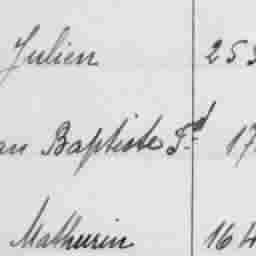 Julien 253
an Baptiste Fd 17
Mathurin 164